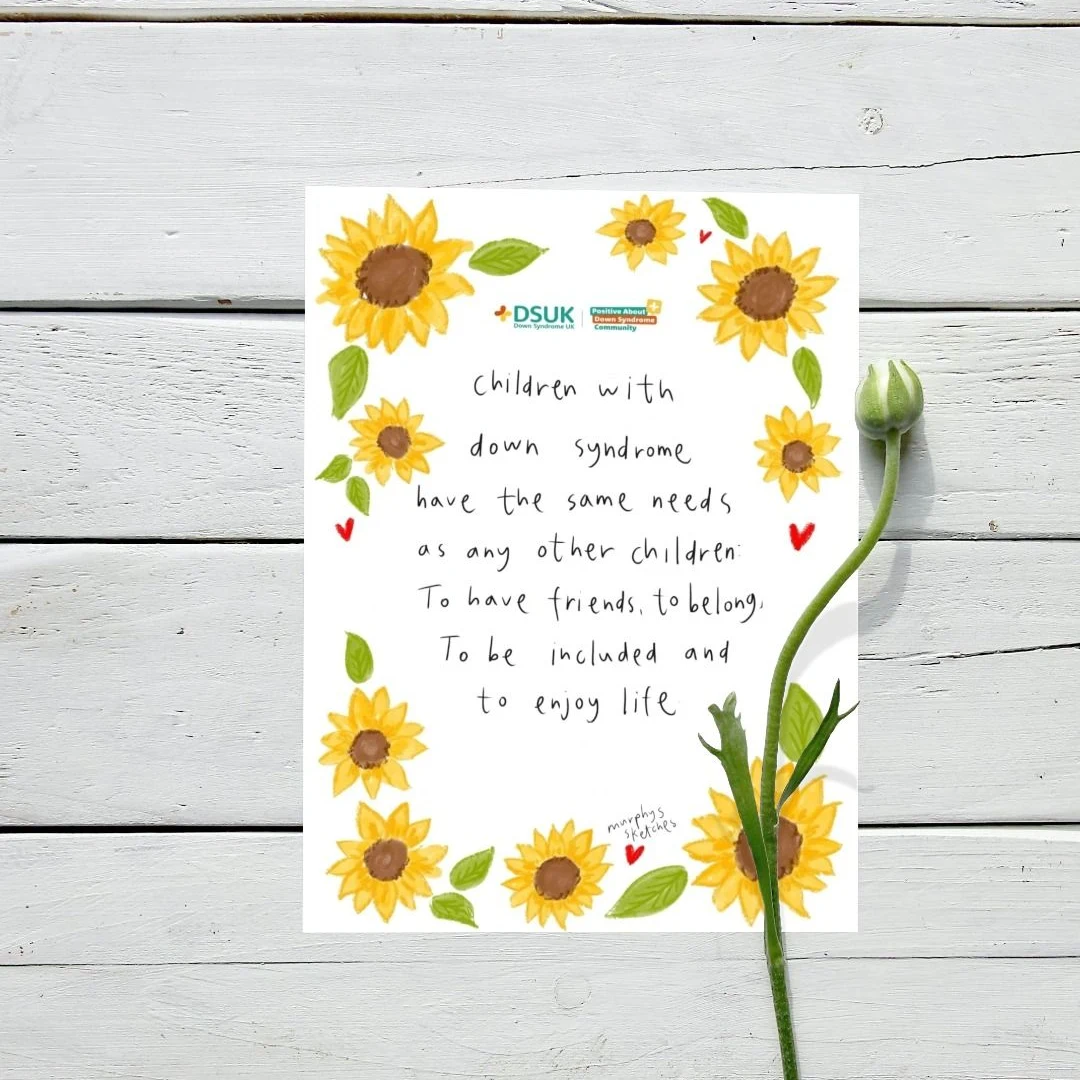 DSUK
Down Syndrome UK
Positive About
Down Syndrome
Community
children with
down syndrome
have the same needs
as any other children:
To have friends, to belong,
To be included and
to enjoy life
murphys
sketches